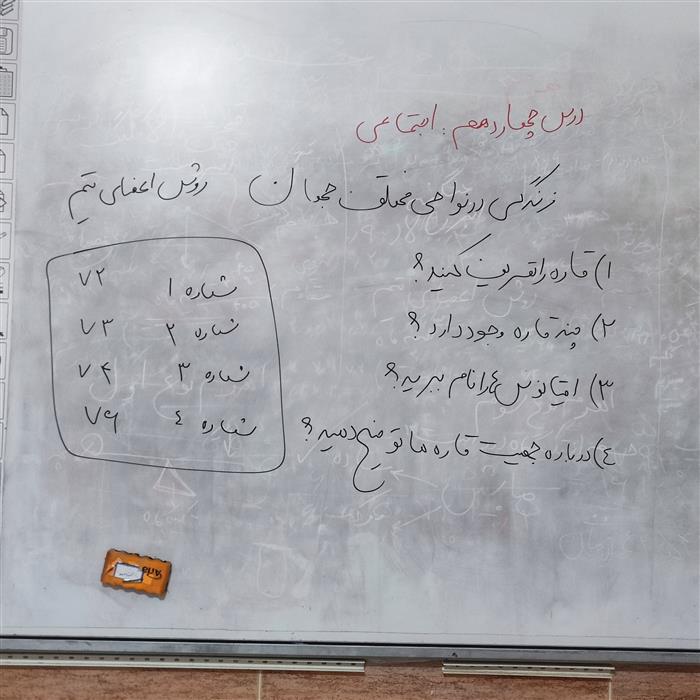 درس چهاردهم: اجتماعی
زندگی در نواحی مختلف جهان روش اعضای تیم
۱) قاره را تعریف کنید؟
۲) چند قاره وجود دارد؟
۳) اقیانوس ها را نام ببرید؟
٤) درباره جمعیت قاره ها توضیح دهید؟
شماره ۱ ۷۲
شماره ۲ ۷۳
شماره ۳ ۷۴
شماره ٤ ۷۶